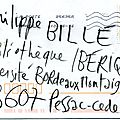 hilippe BILLE
bliothèque IBERIQ
ersité BORDEAUX MONTAIGN
3607 Pessac-cede